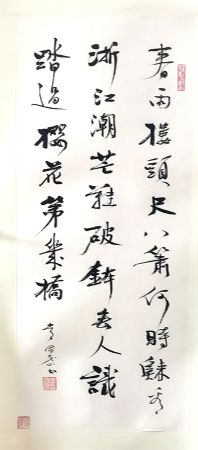 春雨樓頭尺八簫何時歸看
浙江潮芒鞋破鉢無人識
踏過櫻花第幾橋